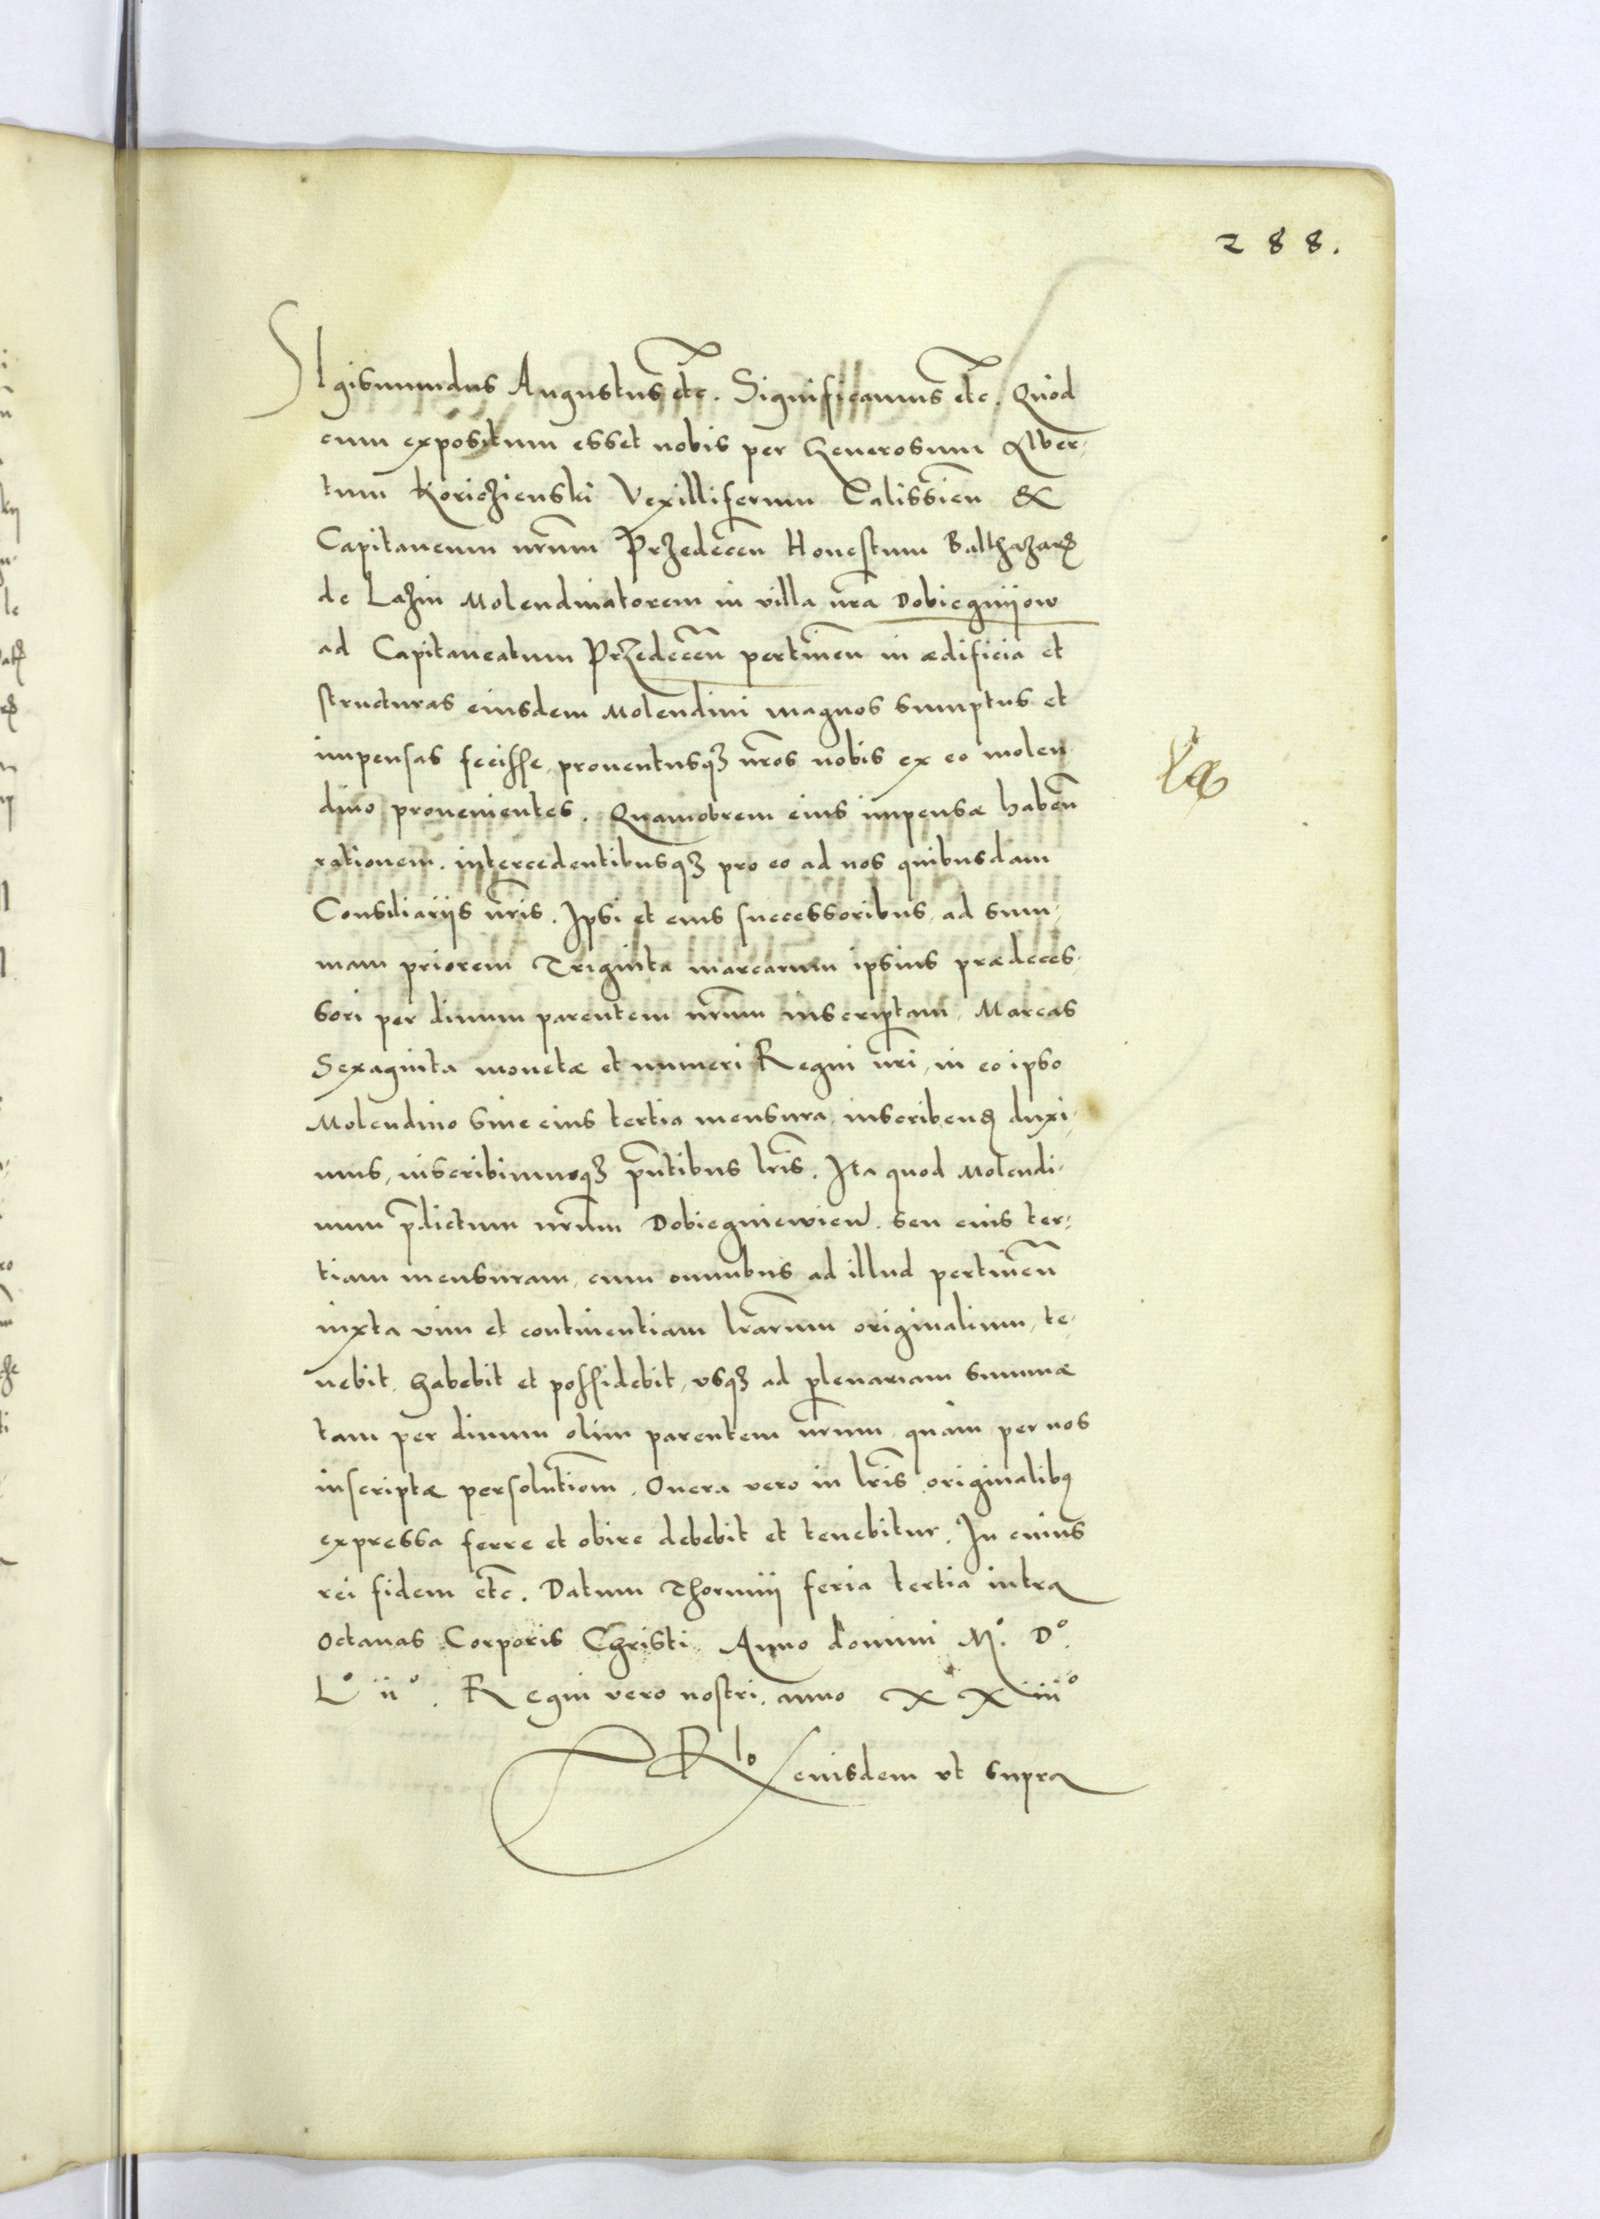 288.
SIgismundus Augustus etc. Significamus etc. Quod
cum expositum esset nobis per Generosum Alber-
tum Koriczienski Vexilliferum Calissien̄ &
Capitaneum nr̄um Przedecen̄ Honestum Balthazarꝫ
de Lazin Molendinatorem in villa nr̄a Dobiegnijow
ad Capitaneatum Przedecen̄ pertinen̄ in ædificia et
structuras eiusdem Molendini magnos sumptus et
impensas fecisse, prouentusqꝫ nr̄os nobis ex eo molen
dino prouenientes. Quamobrem eius impensæ haben̄
rationem. intercedentibusqꝫ pro eo ad nos quibusdam
Consiliarijs nr̄is. Ipsi et eius successoribus, ad sum-
mam priorem Triginta marcarum ipsius prædeces-
sori per diuum parentem nr̄um inscriptam, Marcas
Sexaginta monetæ et numeri Regni nr̄i, in eo ipso
Molendino siue eius tertia mensura, inscribendꝫ duxi-
mus, inscribimusqꝫ pn̄tibus lr̄is. Ita quod Molendi-
num p̄dictum nr̄um Dobiegniewien̄. seu eius ter-
tiam mensuram, cum omnibus ad illud pertinen̄
iuxta vim et continentiam lr̄arum originalium, te-
nebit, habebit et possidebit, vsqꝫ ad plenariam summæ
tam per diuum olim parentem nr̄um, quàm per nos
inscriptæ persolutiom̄. Onera vero in lr̄is originalibꝰ
expressa ferre et obire debebit et tenebitur. In cuius
rei fidem etc. Datum Thorunij feria tertia intra
Octauas Corporis Christi. Anno domini Mº. Dº.
Lº iiº. Regni vero nostri. anno XXiiiº
Rlo eiusdem vt supra